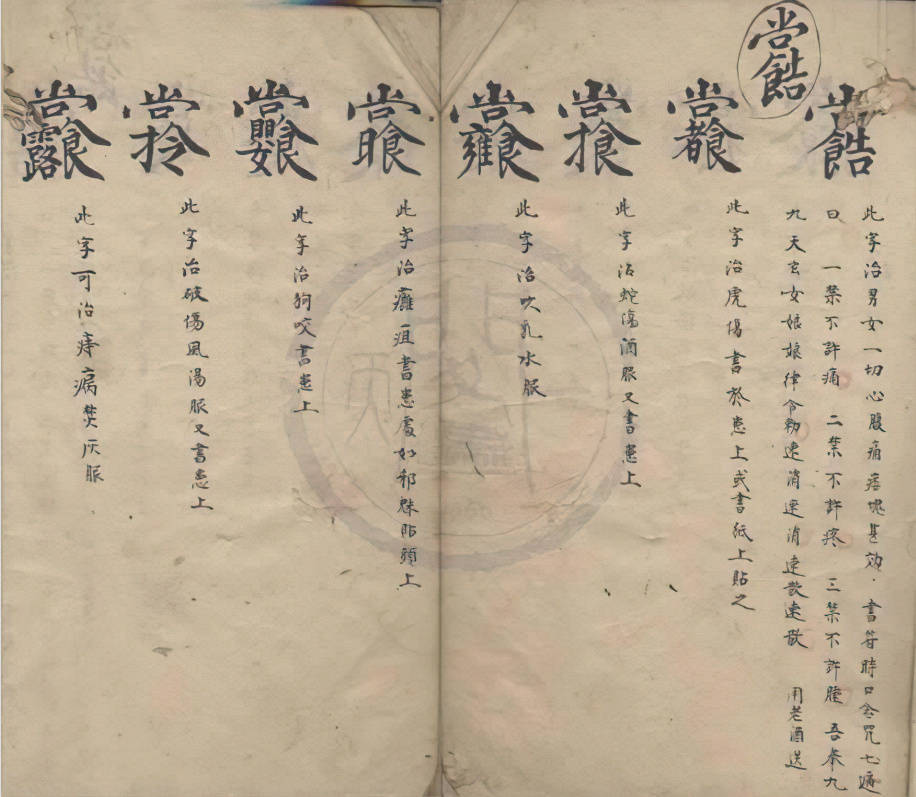 此字治男女一切心腹痛痞塊甚效 書符時口念咒七遍
曰 一禁不許痛 二禁不許疼 三禁不許腫 吾奉九
九天玄女娘娘律令勅速消速消速散速散 用老酒送
此字治虎傷書於患上或書紙上貼之
此字治蛇傷酒服又書患上
此字治吹乳水服
此字治癰疽書患處如邪魅貼頭上
此字治狗咬書患上
此字治破傷風湯服又書患上
此字可治痔漏焚灰服